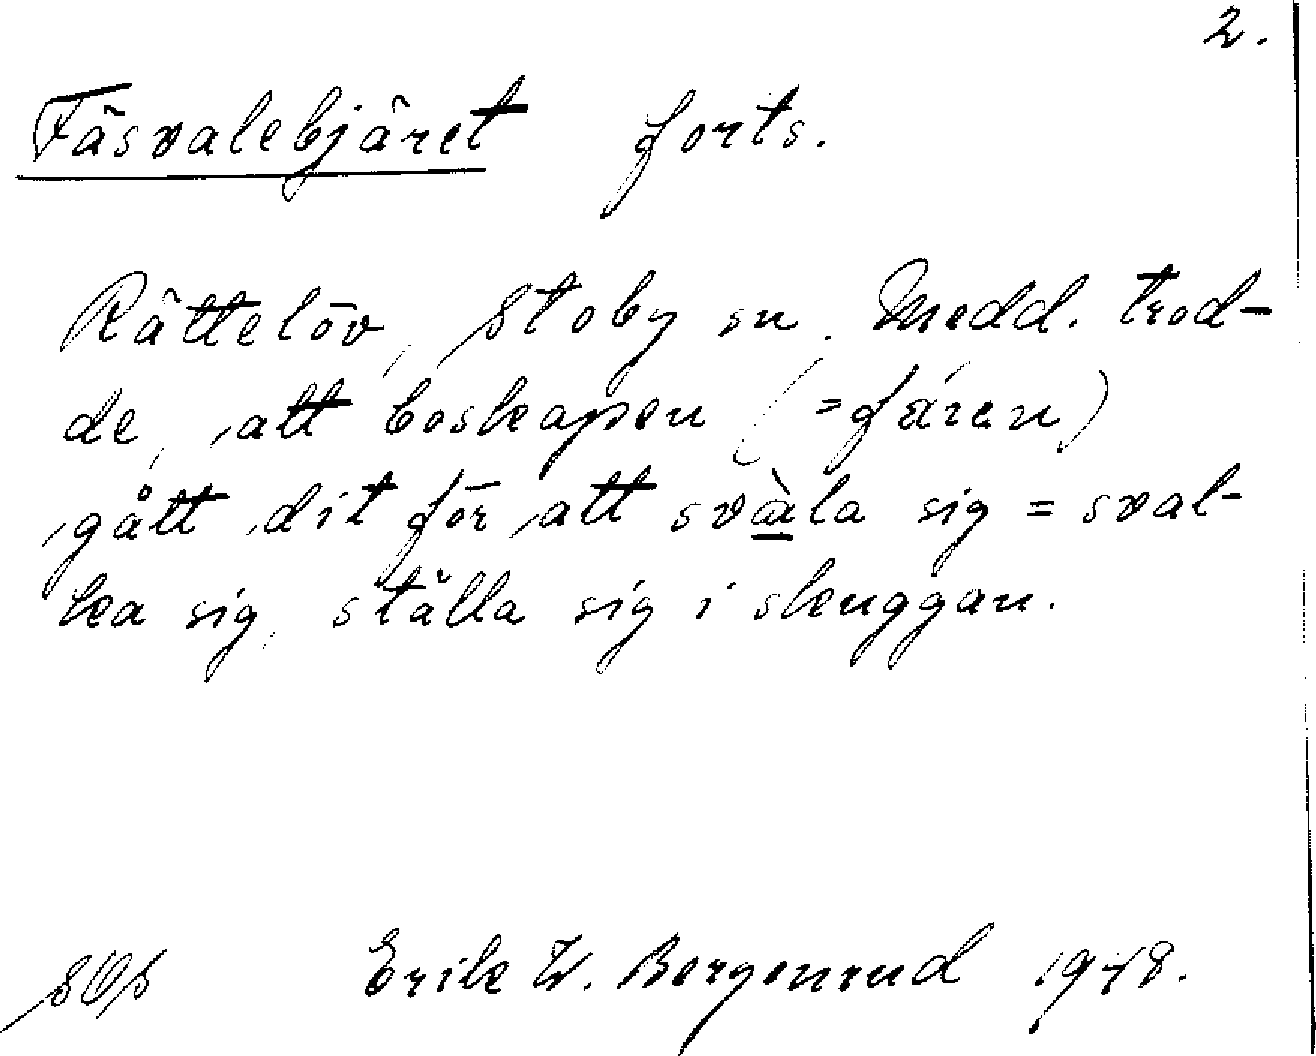 2.
Fäsvalebjäret forts.
Rättelöv, Stoby sn. Medd. trod-
de, att boskapen (=fåren)
gått dit för att svàla sig = sval-
ka sig, ställa sig i skuggan.
Erik W. Bergenrud 1978.